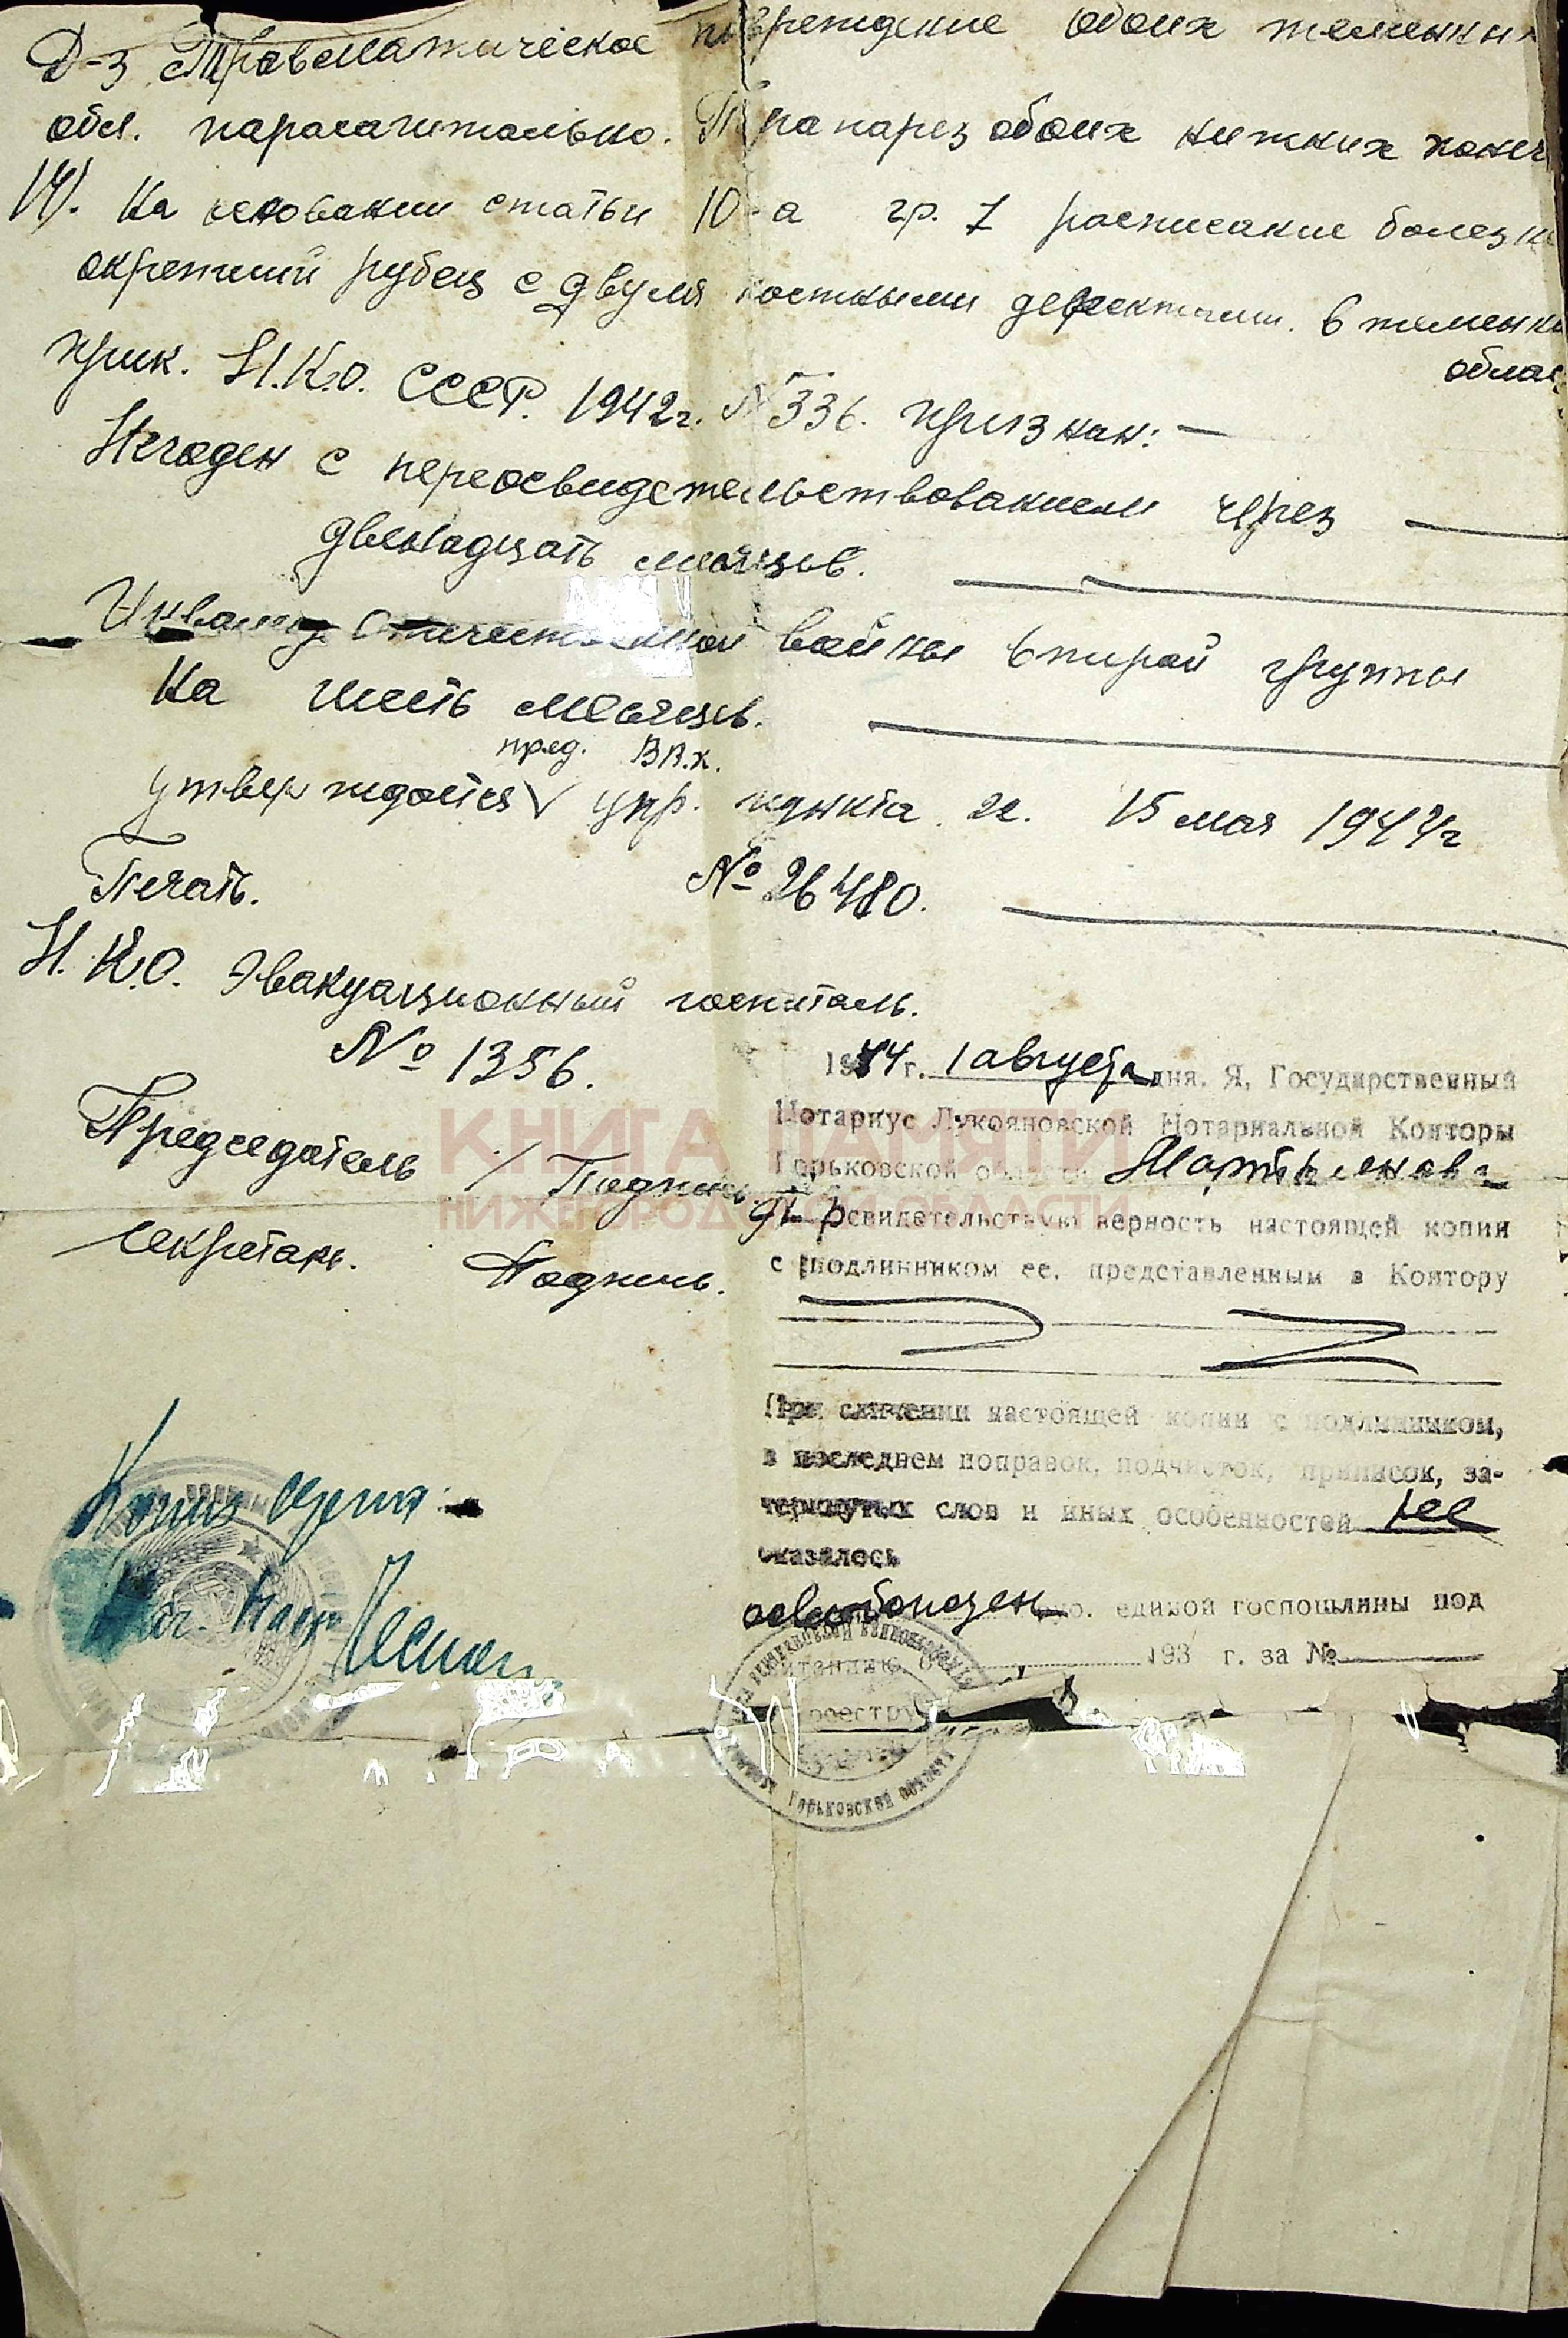 Д-з Травматическое повреждение обоих теменных
обл. парасагитально. Парапарез обоих нижних конеч
14). На основании статьи 10-а гр. I расписание болезн
окрепший рубец с двумя костными дефектами. в теменн
облас
прик. Н.К.О. СССР. 1942г. № 336. признан: —
Негоден с переосвидетельствованием через —
двенадцать месяцев. —
Инвалид Отечественной войны второй группы
на шесть месяцев. —
пред. ВВ.К.
утверждается V упр. пункта 22. 15 мая 1944г
Печать. № 26480. —
Н.К.О. Эвакуационный госпиталь.
№ 1356.
Председатель / Подпись.
Секретарь. Подпись.
1944 г. 1 августа дня. Я, Государственный
Нотариус Лукояновской Нотариальной Конторы
Горьковской области
свидетельствую верность настоящей копии
с подлинником ее, представленным в Контору
При сличении настоящей копии с подлинником,
в последнем поправок, подчисток, приписок, за-
черкнутых слов и иных особенностей не
оказалось
освобожден единой госпошлины под
193 г. за №
реестру
Горьковской области
Копия верна:
КНИГА ПАМЯТИ
НИЖЕГОРОДСКОЙ ОБЛАСТИ